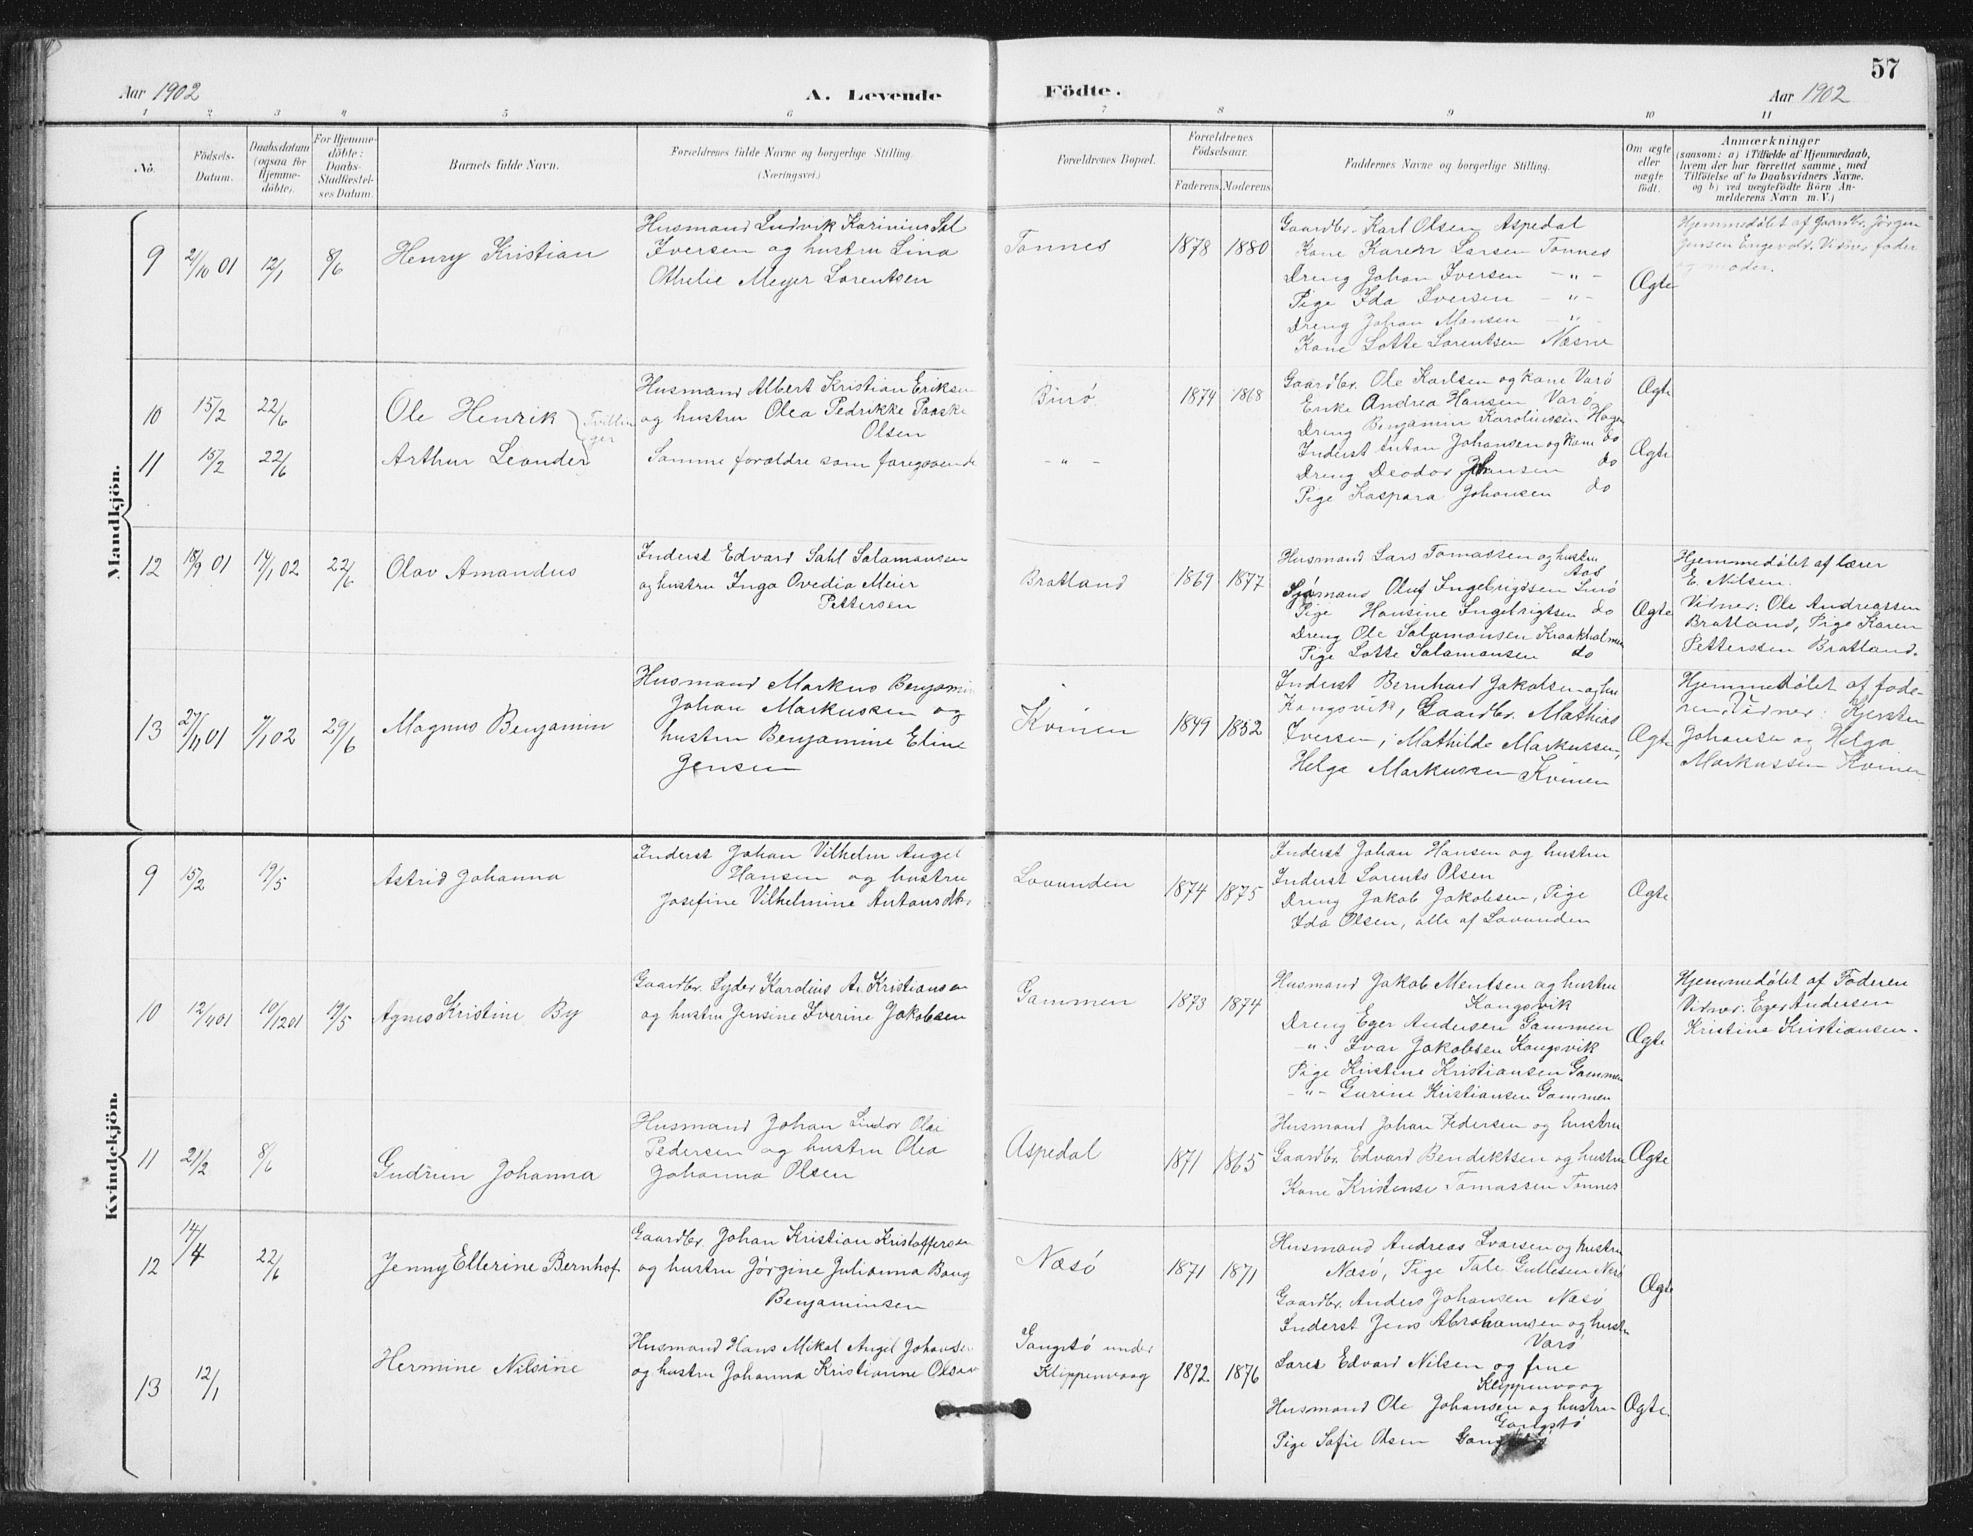 57
Aar 1902 A. Levende Födte. Aar 1902
1 2 3 4 5 6 7 8 9 10 11
No.
Födsels-Datum.
Daabsdatum (ogsaa for Hjemme-döbte).
For Hjemme-döbte: Daabs-Stadfæstel-ses Datum.
Barnets fulde Navn.
Forældrenes fulde Navne og borgerlige Stilling.
(Næringsvei.)
Forældrenes Bopæl.
Forældrenes Födselsaar.
Faderens. Moderens.
Faddernes Navne og borgerlige Stilling.
Om ægte eller uægte födt.
Anmærkninger
(saasom: a) i Tilfælde af Hjemmedaab,
hvem der har forrettet samme, med
Tilföielse af to Daabsvidners Navne.
og b) ved uægtefödte Börn An-
melderens Navn m. V.)
Mandkjön.
9 2/10 01 12/1 8/6 Henry Kristian
Husmand Ludvik Karinius Sal
Iversen og hustru Lina
Othelie Meyer Lorentsen
Tonnes 1878 1880
Gaardbr. Karl Olsen Aspedal
Kone Karen Larsen Tonnes
Dreng Johan Iversen - " -
Pige Ida Iversen - " -
Dreng Johan Mansen - " -
Kone Lotte Lorentsen Næsne
Ægte
Hjemmedøbt af Gaardbr. Jørgen
Jensen Engevold. Vidner fader
og moder.
10 15/2 22/6 Ole Henrik
Tvillinger
Husmand Albert Kristian Eriksen
og hustru Olea Pedrikke Paaske
Olsen
1874 1868
Gaardbr. Ole Karlsen og kone Varø
Enke Andrea Hansen Varø
Dreng Benjamin Karoliussen Hagen
Ægte
11 15/2 22/6 Arthur Leander
Samme forældre som foregaaende
- " -
Inderst Anton Johansen og kone do
Dreng Deodor Johansen do
Pige Kaspara Johansen do
Ægte
12 18/9 01 17/1 02 22/6 Olav Amandus
Inderst Edvard Sahl Salamonsen
og hustru Inga Ovedia Meier
Pettersen
Bratland 1869 1877
Husmand Lars Tomassen og hustru
Aas
Sømand Oluf Ingebrigtsen
Pige Hansine Ingebrigtsen do
Dreng Ole Salamonsen Kraakholmen
Pige Lotte Salamonsen do
Ægte
Hjemmedøbt af lærer
E. Nilsen.
Vidner: Ole Andreassen
Bratland, Pige Karen
Petterssen Bratland.
13 27/11 01 7/1 02 29/6 Magnus Benjamin
Husmand Markus Benjamin
Johan Markussen og
hustru Benjamine Eline
Jensen
Kvinen 1849 1852
Inderst Bernhard Jakobsen og hu
Kongsvik, Gaardbr. Mathias
Iversen, Mathilde Markussen,
Helga Markussen Kvinen
Ægte
Hjemmedøbt af fade-
ren, Vidner: Kjersten
Johansen og Helga
Markussen Kvinen
Kvindekjön.
9 15/2 19/5 Astrid Johanna
Inderst Johan Vilhelm Angel
Hansen og hustru
Josefine Vilhelmine Antonsdtr.
Lovunden 1874 1875
Inderst Johan Hansen og hustru
Inderst Lorents Olsen
Dreng Jakob Jakobsen, Pige
Ida Olsen, alle af Lovunden
Ægte
10 12/4 01 10/12 01 19/5 Agnes Kristine By
Gaardbr. Lyder Kardius A. Kristiansen
og hustru Jensine Iverine Jakobsen
Gammen 1873 1874
Husmand Jakob Mentsen og hustru
Kongsvik
Dreng Eger Andersen Gammen
- " - Ivar Jakobsen Kongsvik
Pige Kristine Kristiansen Gammen
- " - Gurine Kristiansen Gammen
Ægte
Hjemmedøbt af Faderen
Vidner: Eger Andersen
Kristine Kristiansen.
11 21/2 8/6 Gudrun Johanna
Husmand Johan Lindor Olai
Pedersen og hustru Olea
Johanna Olsen
Aspedal 1871 1865
Husmand Johan Pedersen og hustru
Gaardbr. Edvard Bendiktsen og hustru
Kone Kristense Tomassen Tonnes
Ægte
12 14/4 22/6 Jenny Ellerine Bernhof
Gaardbr. Johan Kristian Kristoffersen
og hustru Jørgine Julianna Bang
Benjaminsen
Næsø 1871 1871
Husmand Andreas Ivarsen og hustru
Næsø, Pige Tale Gullesen Næsø
Gaardbr. Anders Johansen Næsø
Inderst Jens Abrahamsen og hustru
Varø
Ægte
13 12/1 Hermine Nilsine
Husmand Hans Mikal Angel Johansen
og hustru Johanna Kristianne Olsen
Gangstø under
Klippenvaag
1872 1876
Lars Edvard Nilsen og frue
Klippenvaag
Husmand Ole Johansen og hustru
Gangstø
Pige Sofie Olsen
Ægte